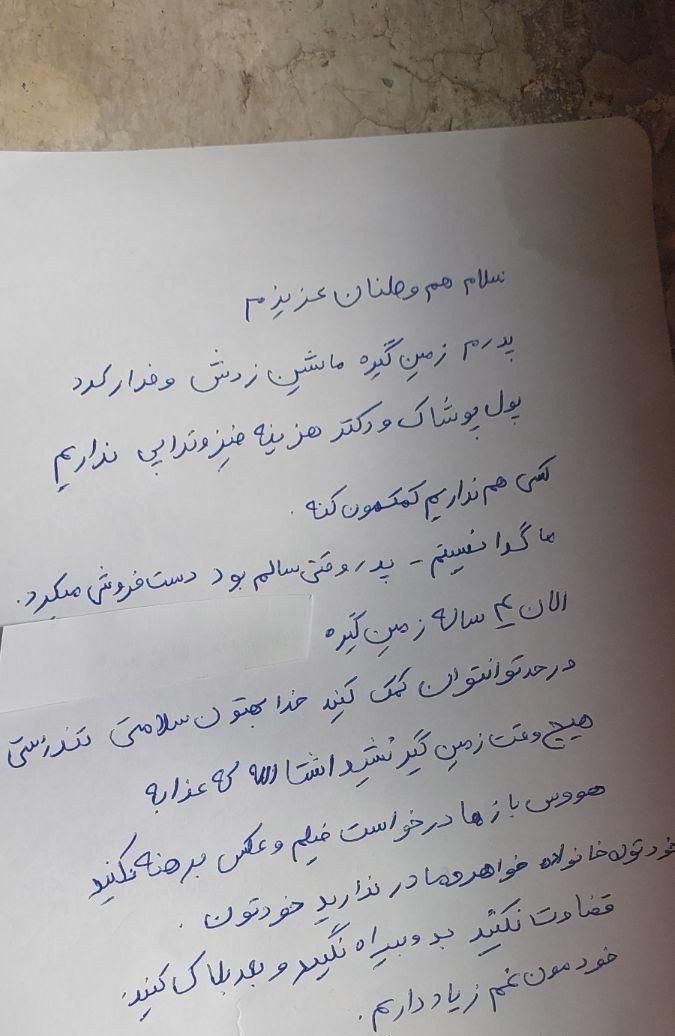 سلام هم وطنان عزیزم
پدرم زمین گیره ماشین زدش و فرار کرد
پول پوشاک و دکتر هزینه خیز و ندایی نداریم
کسی هم نداریم کمکمون کنه .
ما گدا نیستیم - پدر وقتی سالم بود دست فروشی میکرد.
الان یه ساله زمین گیره
در حد توانتوان کمک کنید خدا بهتون سلامتی تندرستی
هیچ وقت زمین گیر نشید انشاالله که عذابه
هووس باز ها درخواست فیلم و عکس برهنه نکنید
خودتون خانواده خواهر و مادر ندارید خودتون .
قضاوت نکنید بد و بیراه نگید و بعد بلاک کنید.
خودمون غم زیاد داریم .